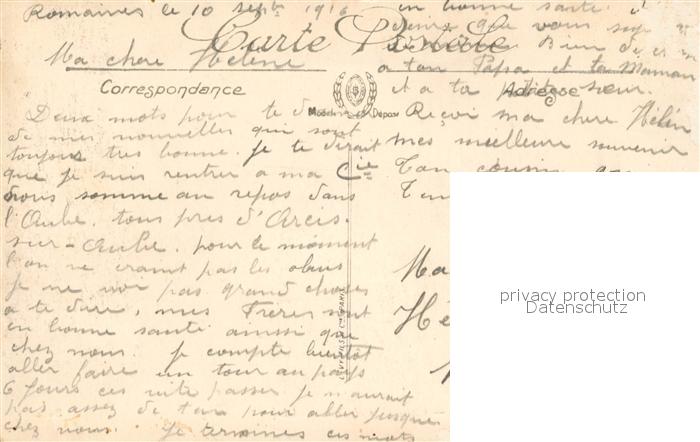 Romaines le 10 septbre 1916
Carte Postale
Ma chere Hélène
Correspondance
Deux mots pour te d
de mes nouvelles qui sont
toujours tres bonne. je te dirait
que je suis rentrer a ma Cie
nous somme au repos dans
l'Aube. tous pres d'Arcis-
sur-Aube. pour le moment
l'on ne craint pas les obus
je ne voi pas grand choses
a te dire, mes Frères sont
en bonne santé ainsi que
chez nous. je compte bientôt
aller faire un tour au pays
6 jours ces vite passer je n'aurait
pas assez de pour aller jusque
chez nous. je termines ces mots
en bonne santé
que vous
Bien de
a ton Papa et ta Maman
et a ta petite sœur.
Adresse
Modèle Déposé
Reçoi ma chere Hélèn
mes meilleure souvenir
Ton cousin
Ma
Hé
privacy protection
Datenschutz